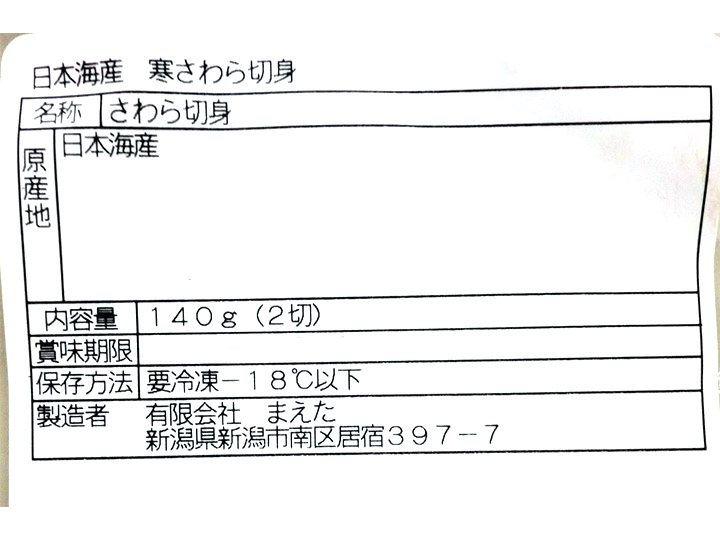 日本海産　寒さわら切身
名称　さわら切身
原産地　日本海産
内容量　１４０ｇ（２切）
賞味期限
保存方法　要冷凍－１８℃以下
製造者　有限会社　まえた
新潟県新潟市南区居宿３９７－７